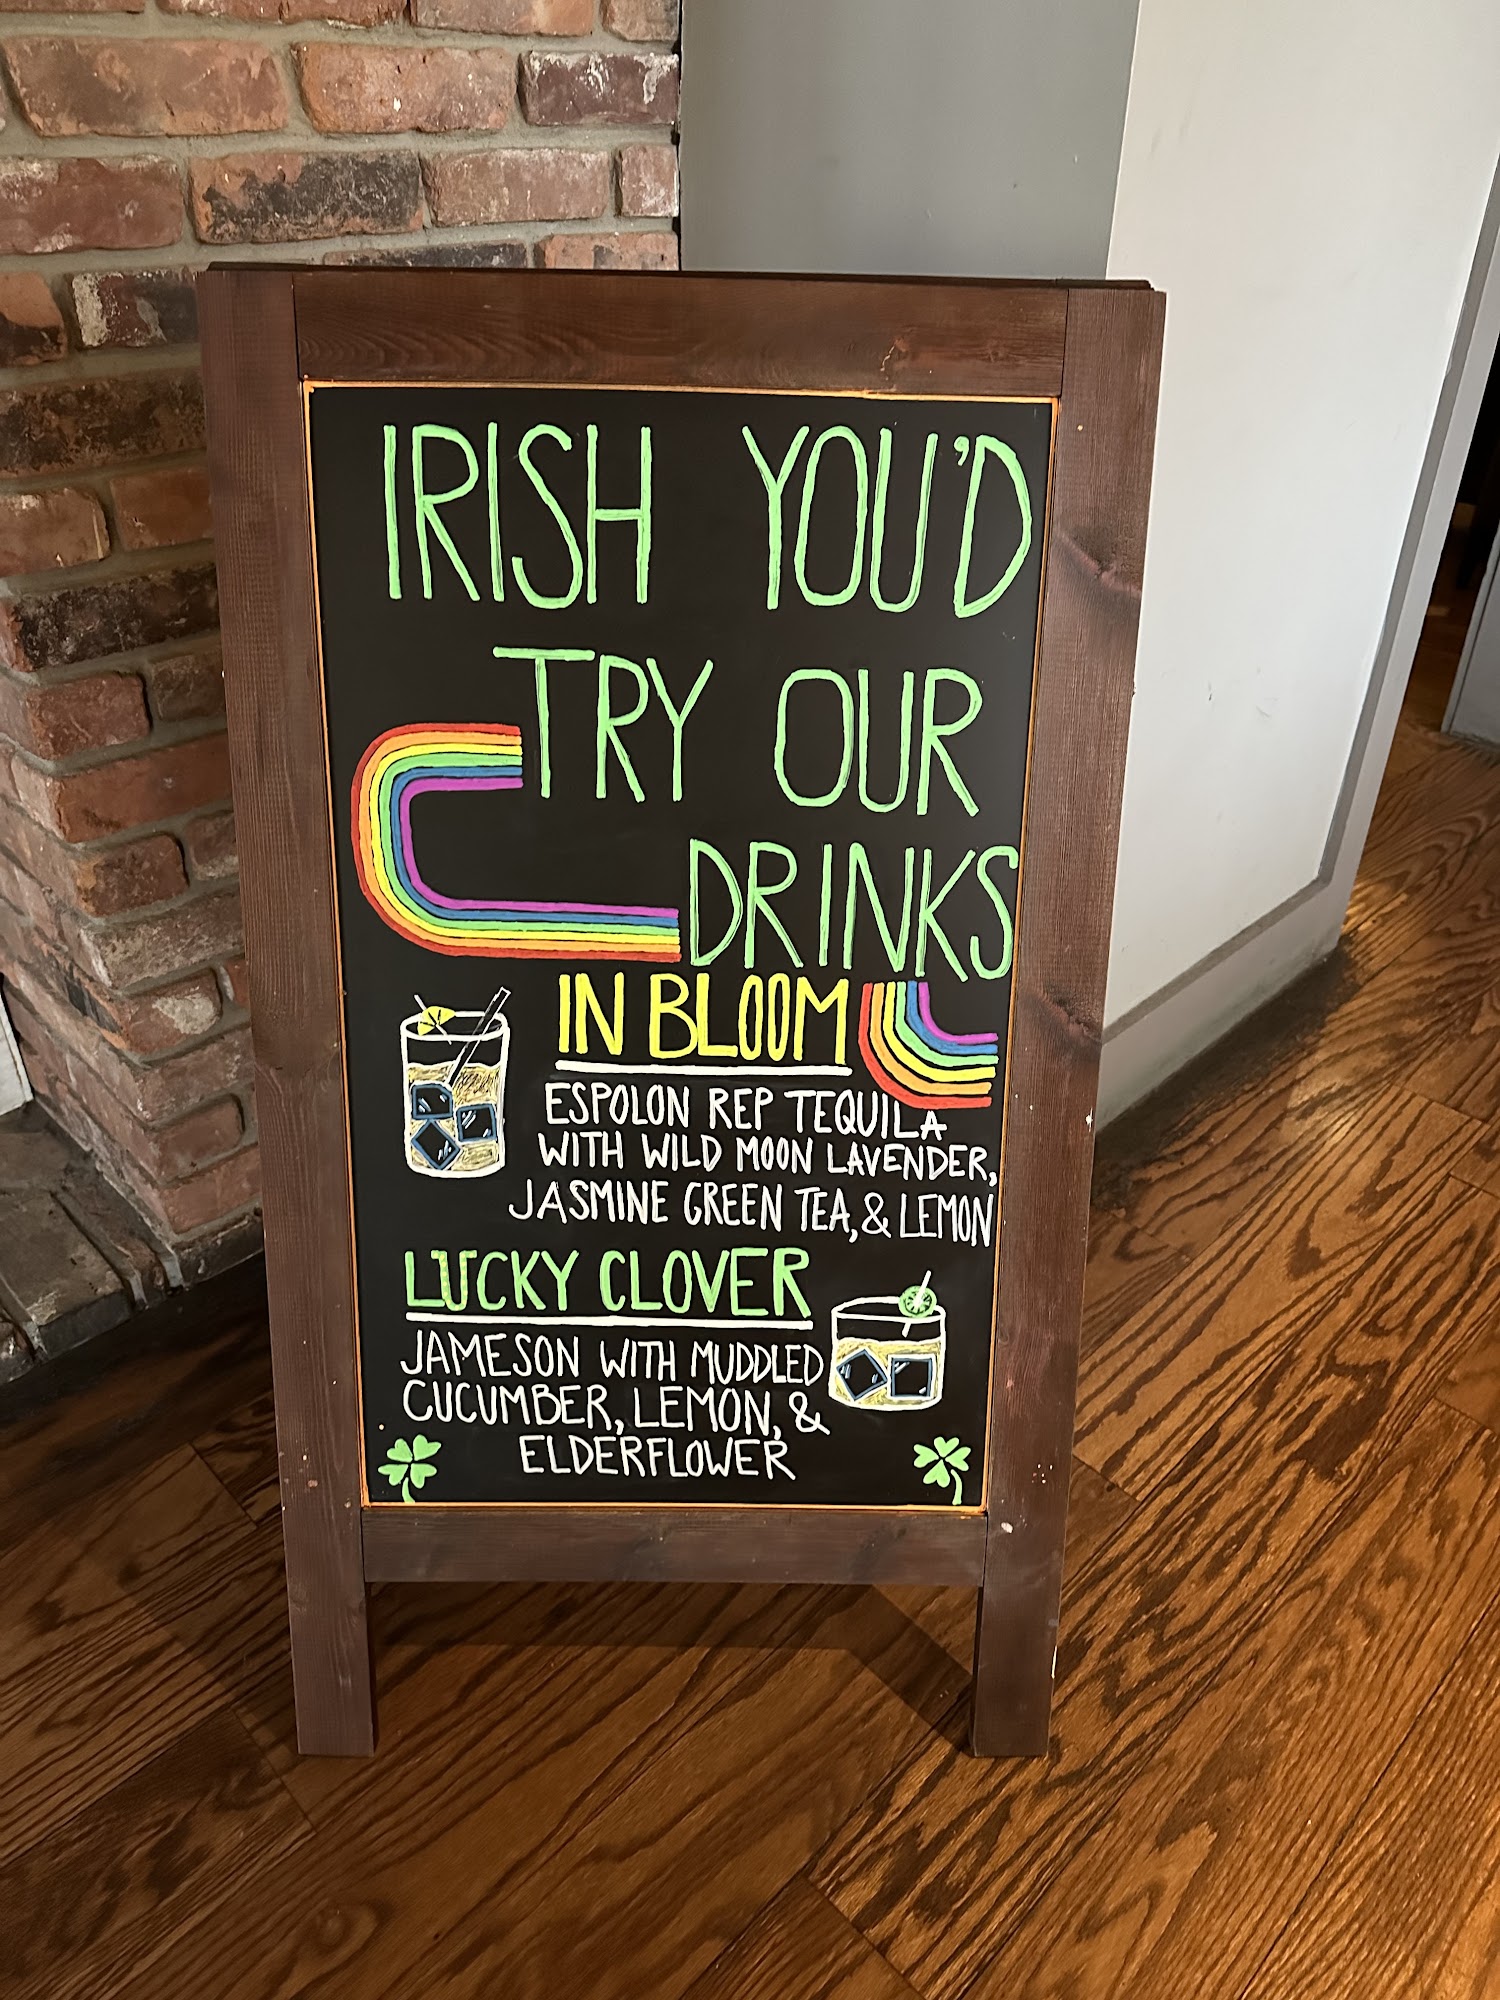 IRISH YOU'D
TRY OUR
DRINKS
IN BLOOM
ESPOLON REP TEQUILA
WITH WILD MOON LAVENDER,
JASMINE GREEN TEA, & LEMON
LUCKY CLOVER
JAMESON WITH MUDDLED
CUCUMBER, LEMON, &
ELDERFLOWER